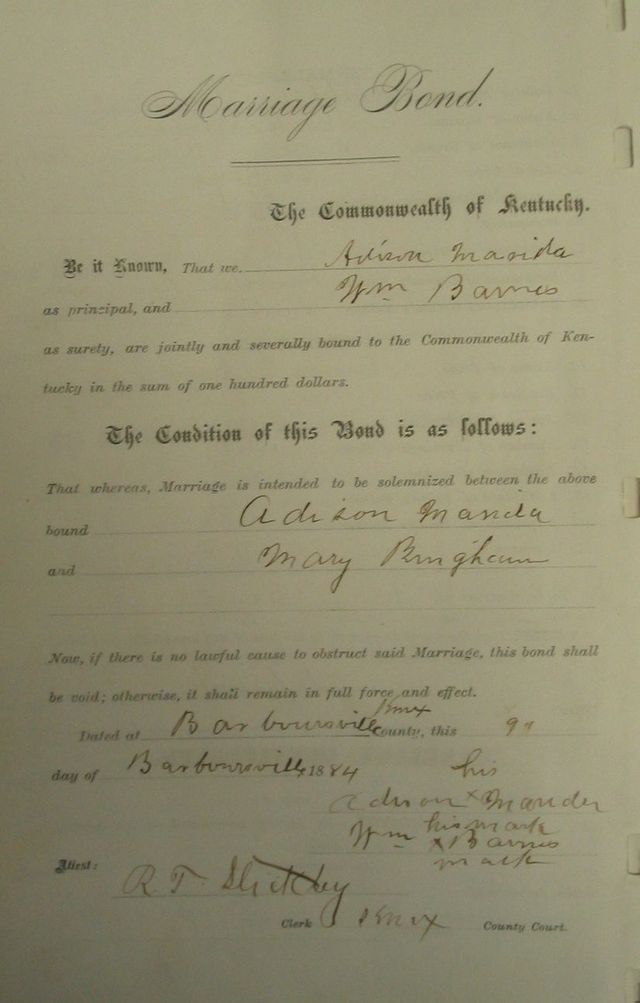 Marriage Bond.
The Commonwealth of Kentucky.
Be it Known, That we Adison Marida
as principal, and Wm Barnes
as surety, are jointly and severally bound to the Commonwealth of Ken-
tucky in the sum of one hundred dollars.
The Condition of this Bond is as follows:
That whereas, Marriage is intended to be solemnized between the above
bound Adison Marida
and Mary Bingham
Now, if there is no lawful cause to obstruct said Marriage, this bond shall
be void; otherwise, it shall remain in full force and effect.
Dated at Barboursville Knox County, this 9
day of Barboursville 1884
his
Adison x
his mark
Wm x Barnes
mark
Attest:
R T
Clerk Knox County Court.